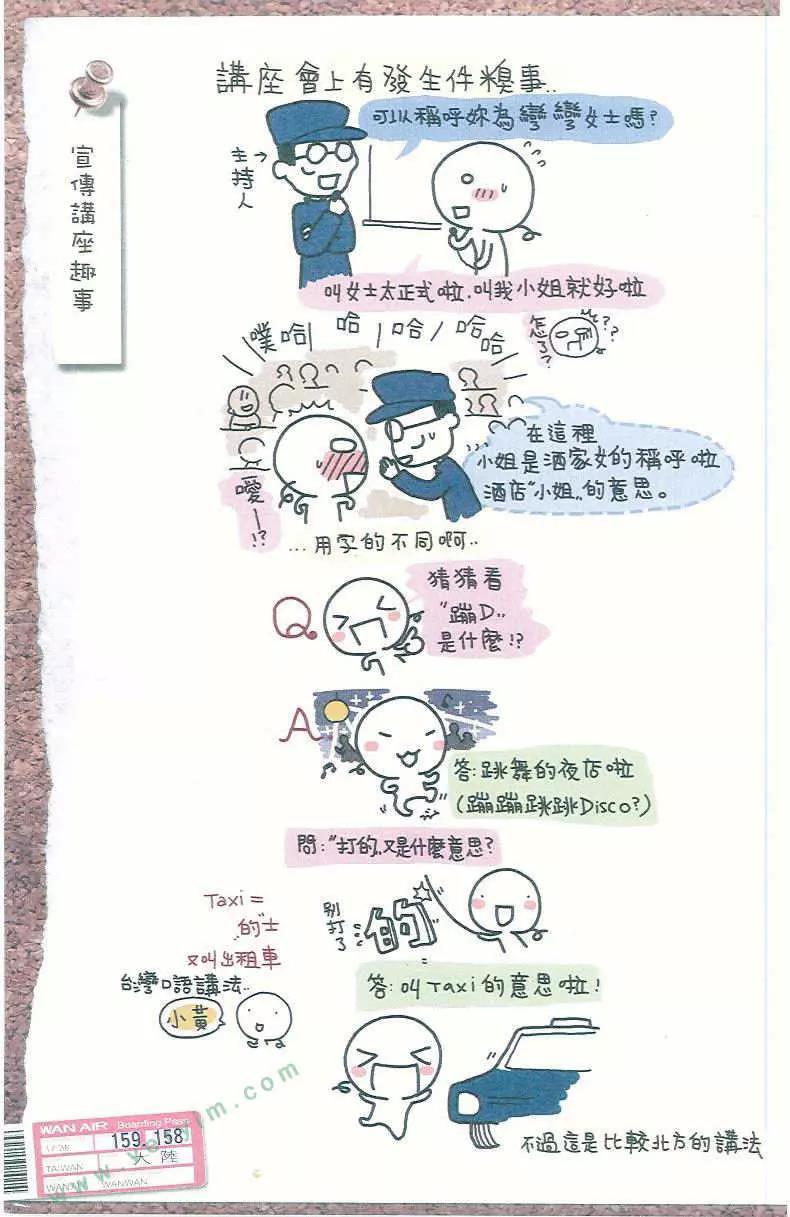 講座會上有發生件糗事..
宣傳講座趣事
可以稱呼妳為彎彎女士嗎?
主持人→
叫女士太正式啦.叫我小姐就好啦
怎了?
??
噗哈哈哈哈哈
在這裡
小姐是酒家女的稱呼啦
酒店"小姐"的意思。
噯—!?
...用字的不同啊..
Q
猜猜看
"蹦D"
是什麼!?
A
答:跳舞的夜店啦
(蹦蹦跳跳Disco?)
問:"打的"又是什麼意思?
別打了
的
Taxi=
"的"士
又叫出租車
台灣口語講法..
小黃
答:叫Taxi的意思啦!
不過這是比較北方的講法
WAN AIR Boarding Pass
159. 158
TAIWAN 大陸
WANWAN